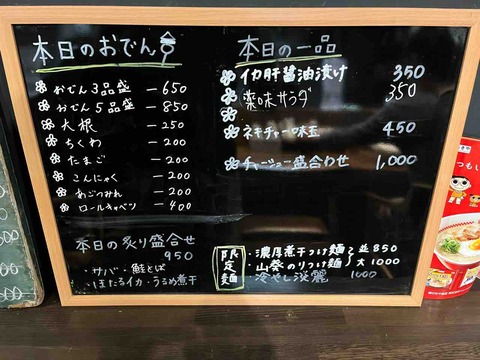 本日のおでん
おでん3品盛 — 650
おでん5品盛 — 850
大根 — 250
ちくわ — 200
たまご — 200
こんにゃく — 200
あごつみれ — 200
ロールキャベツ — 400
本日の炙り盛合せ
950
・サバ・鮭とば
・ほたるイカ・うるめ煮干
本日の一品
イカ肝醤油漬け 350
薬味サラダ 350
ネギチャー味玉 450
チャーシュー盛合わせ 1,000
限定麺
・濃厚煮干つけ麺 並850
・山葵のりつけ麺 大1000
・冷やし淡麗 1000